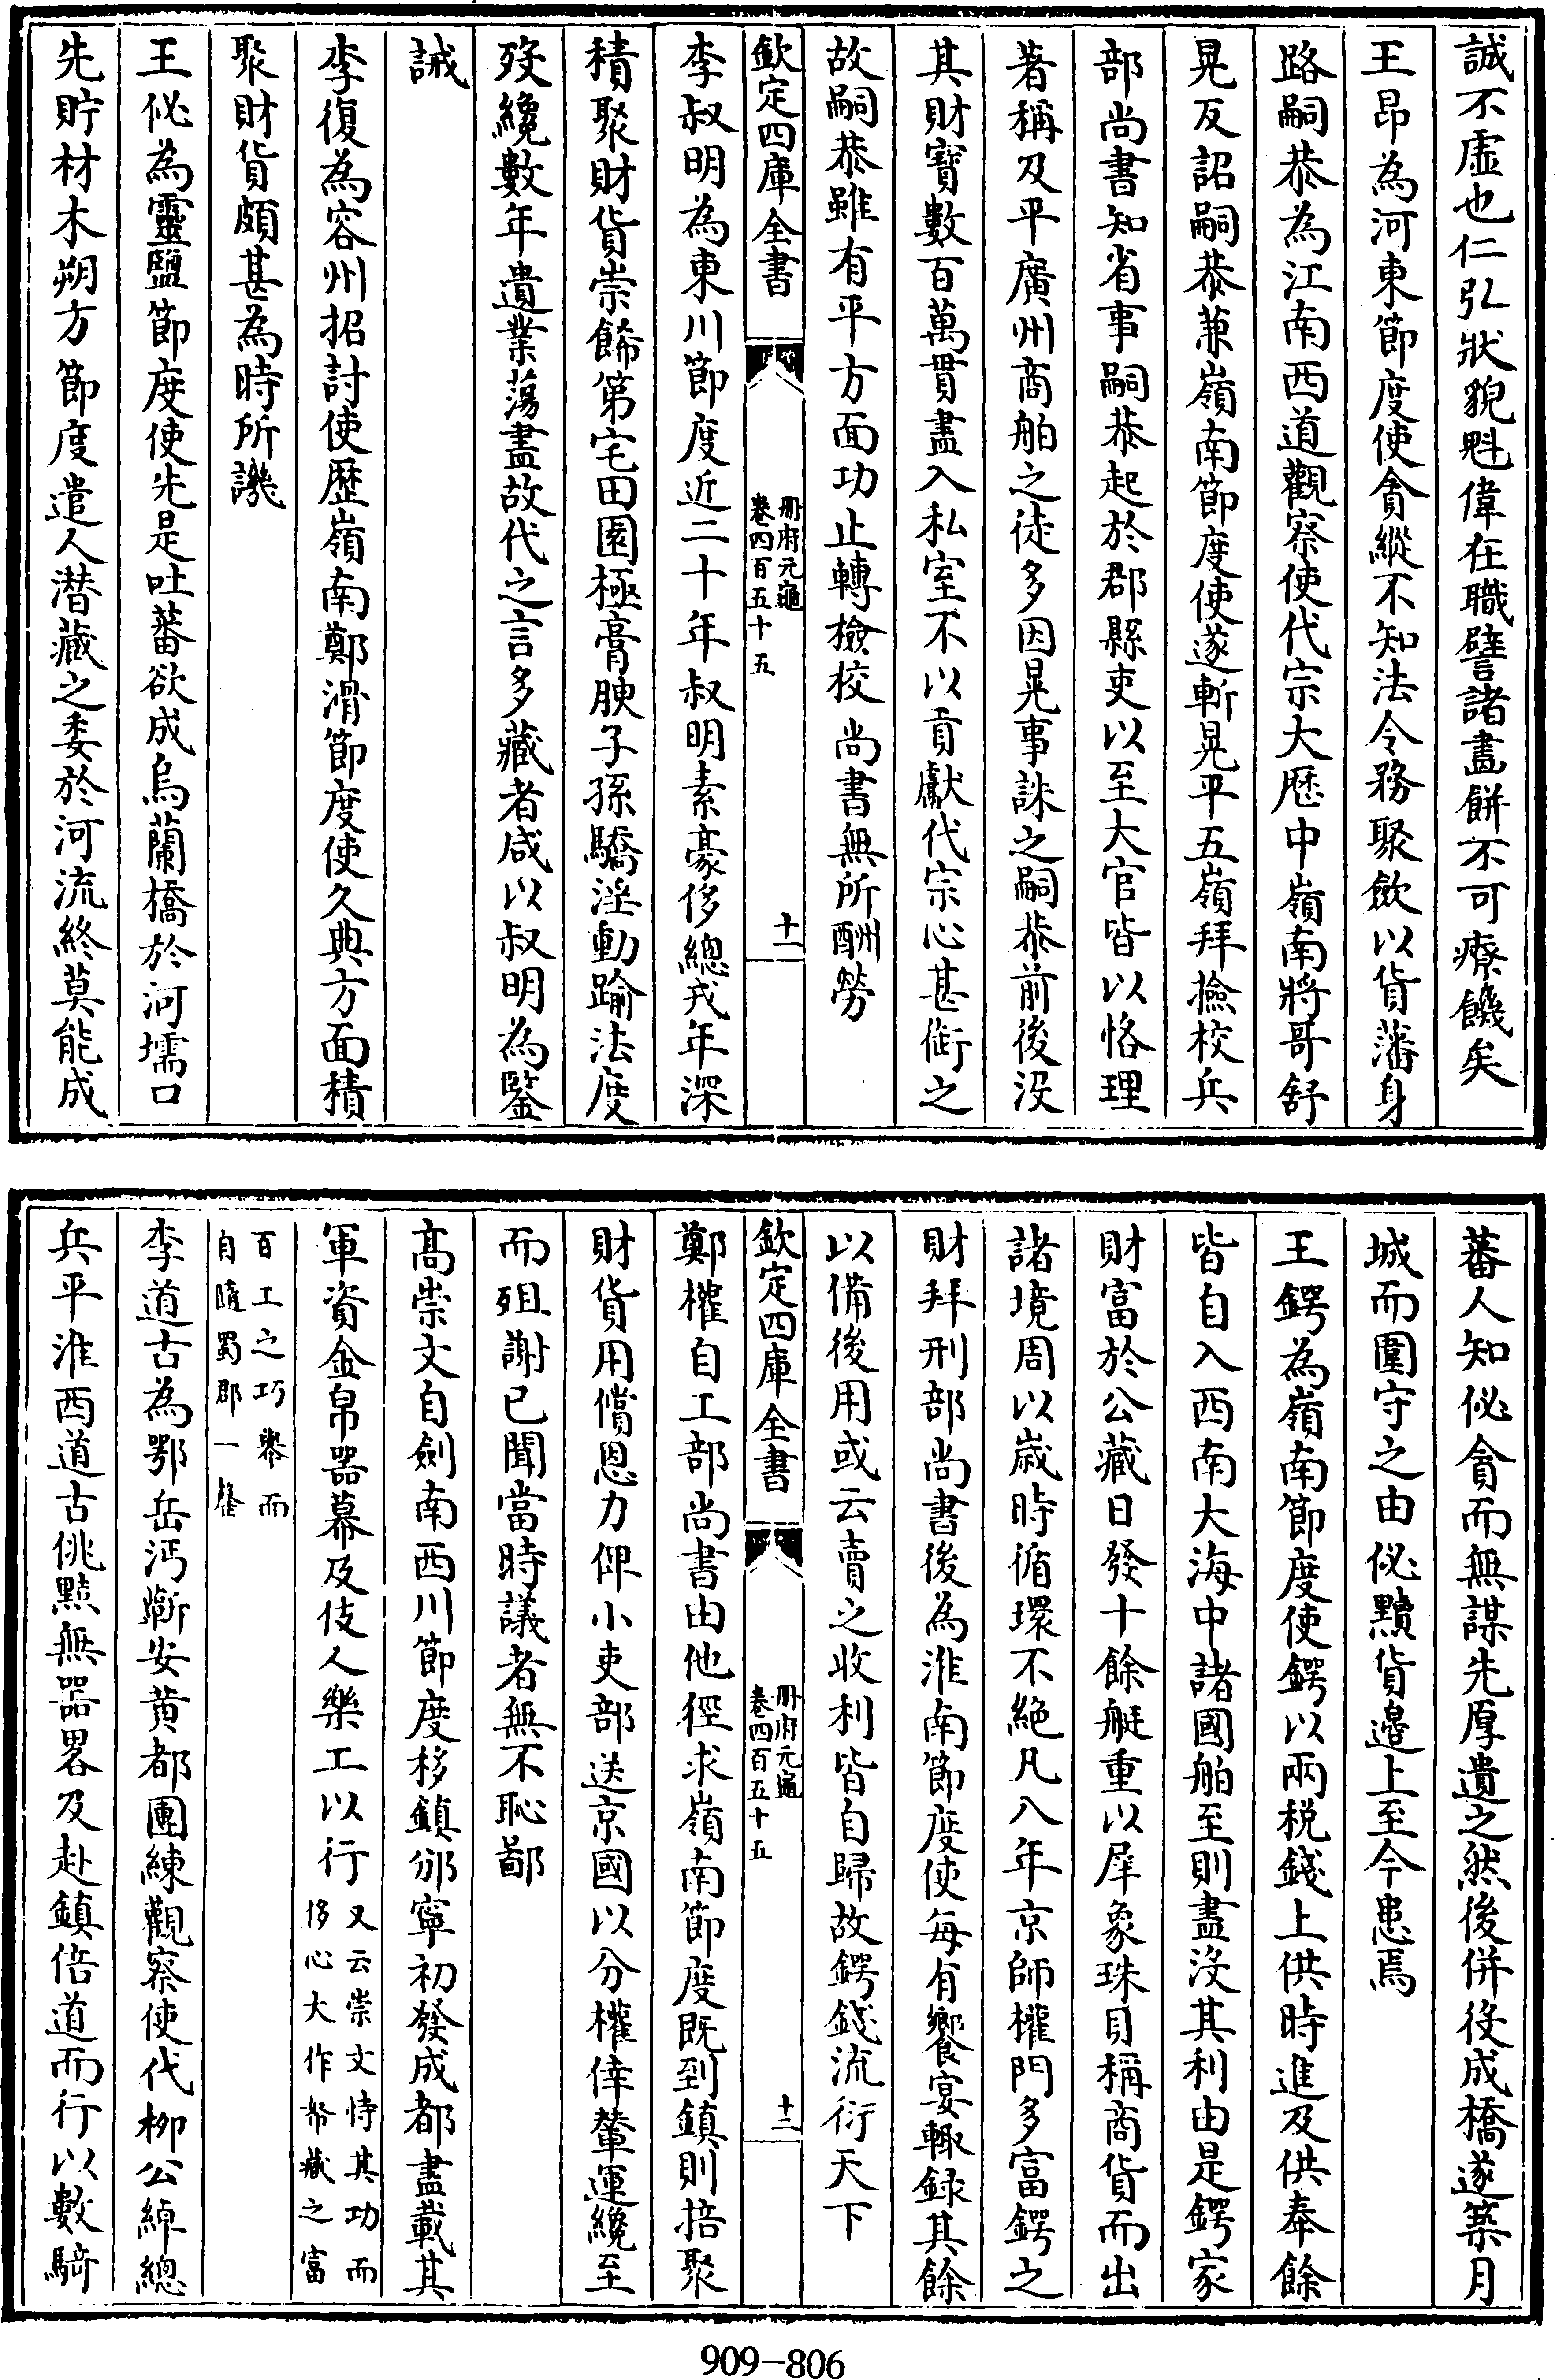 誠不虛也仁弘狀貌魁偉在職譬諸畫餅不可療饑矣
王昂為河東節度使貪縱不知法令務聚歛以貨藩身
路嗣恭為江南西道觀察使代宗大厯中嶺南將哥舒
晃反詔嗣恭兼嶺南節度使遂斬晃平五嶺拜撿校兵
部尚書知省事嗣恭起於郡縣吏以至大官皆以恪理
著稱及平廣州商舶之徒多因晃事誅之嗣恭前後沒
其財寶數百萬貫盡入私室不以貢獻代宗心甚銜之
故嗣恭雖有平方面功止轉檢校尚書無所酬勞
欽定四庫全書
冊府元龜
卷四百五十五
十一
李叔明為東川節度近二十年叔明素豪侈總戎年深
積聚財貨崇餙第宅田園極膏腴子孫驕淫動踰法度
歿纔數年遺業蕩盡故代之言多藏者咸以叔明為鑒
誡
李復為容州招討使歷嶺南鄭滑節度使久典方面積
聚財貨頗甚為時所譏
王佖為靈鹽節度使先是吐蕃欲成烏蘭橋於河壖口
先貯材木朔方節度遣人潛藏之委於河流終莫能成
蕃人知佖貪而無謀先厚遺之然後併役成橋遂築月
城而圍守之由佖黷貨邊上至今患焉
王鍔為嶺南節度使鍔以兩稅錢上供時進及供奉餘
皆自入西南大海中諸國舶至則盡沒其利由是鍔家
財富於公藏日發十餘艇重以犀象珠貝稱商貨而出
諸境周以歲時循環不絕凡八年京師權門多富鍔之
財拜刑部尚書後為淮南節度使每有饗宴輒録其餘
以備後用或云賣之收利皆自歸故鍔錢流衍天下
欽定四庫全書
冊府元龜
卷四百五十五
十二
鄭權自工部尚書由他徑求嶺南節度既到鎮則掊聚
財貨用償恩力俾小吏部送京國以分權倖輦運纔至
而殂謝已聞當時議者無不恥鄙
高崇文自劍南西川節度移鎮邠寧初發成都盡載其
軍資金帛器幕及伎人樂工以行又云崇文恃其功而
侈心大作帑藏之富
百工之巧舉而
自隨蜀郡一罄
李道古為鄂岳沔蘄安黄都團練觀察使代柳公綽總
兵平淮西道古佻黠無器畧及赴鎮倍道而行以數騎
909-806